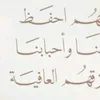 هم احفظ
نا وأحبابنا
قهم العافية